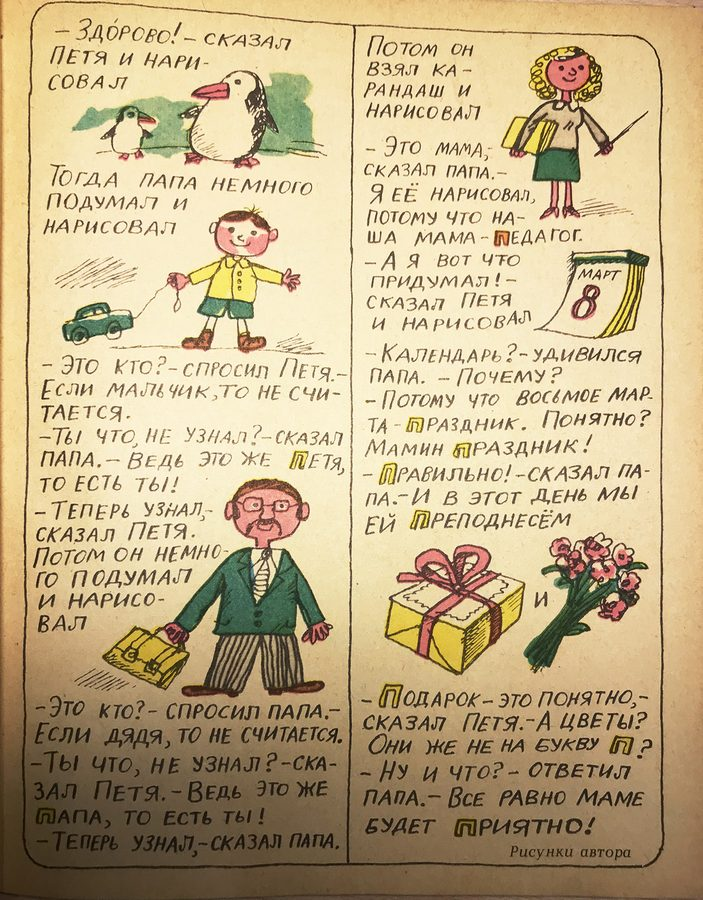 - ЗДÓРОВО! - СКАЗАЛ
ПЕТЯ И НАРИ-
СОВАЛ
ТОГДА ПАПА НЕМНОГО
ПОДУМАЛ И
НАРИСОВАЛ
- ЭТО КТО? - СПРОСИЛ ПЕТЯ. -
ЕСЛИ МАЛЬЧИК, ТО НЕ СЧИ-
ТАЕТСЯ.
- ТЫ ЧТО, НЕ УЗНАЛ? - СКАЗАЛ
ПАПА. - ВЕДЬ ЭТО ЖЕ ПЕТЯ,
ТО ЕСТЬ ТЫ!
- ТЕПЕРЬ УЗНАЛ, -
СКАЗАЛ ПЕТЯ.
ПОТОМ ОН НЕМНО-
ГО ПОДУМАЛ
И НАРИСО-
ВАЛ
- ЭТО КТО? - СПРОСИЛ ПАПА. -
ЕСЛИ ДЯДЯ, ТО НЕ СЧИТАЕТСЯ.
- ТЫ ЧТО, НЕ УЗНАЛ? - СКА-
ЗАЛ ПЕТЯ. - ВЕДЬ ЭТО ЖЕ
ПАПА, ТО ЕСТЬ ТЫ!
- ТЕПЕРЬ УЗНАЛ, - СКАЗАЛ ПАПА.
ПОТОМ ОН
ВЗЯЛ КА-
РАНДАШ И
НАРИСОВАЛ
- ЭТО МАМА, -
СКАЗАЛ ПАПА. -
Я ЕЁ НАРИСОВАЛ,
ПОТОМУ ЧТО НА-
ША МАМА - ПЕДАГОГ.
- А Я ВОТ ЧТО
ПРИДУМАЛ! -
СКАЗАЛ ПЕТЯ
И НАРИСОВАЛ
МАРТ
8
- КАЛЕНДАРЬ? - УДИВИЛСЯ
ПАПА. - ПОЧЕМУ?
- ПОТОМУ ЧТО ВОСЬМОЕ МАР-
ТА - ПРАЗДНИК. ПОНЯТНО?
МАМИН ПРАЗДНИК!
- ПРАВИЛЬНО! - СКАЗАЛ ПА-
ПА. - И В ЭТОТ ДЕНЬ МЫ
ЕЙ ПРЕПОДНЕСЁМ
И
- ПОДАРОК - ЭТО ПОНЯТНО, -
СКАЗАЛ ПЕТЯ. - А ЦВЕТЫ?
ОНИ ЖЕ НЕ НА БУКВУ П?
- НУ И ЧТО? - ОТВЕТИЛ
ПАПА. - ВСЕ РАВНО МАМЕ
БУДЕТ ПРИЯТНО!
Рисунки автора